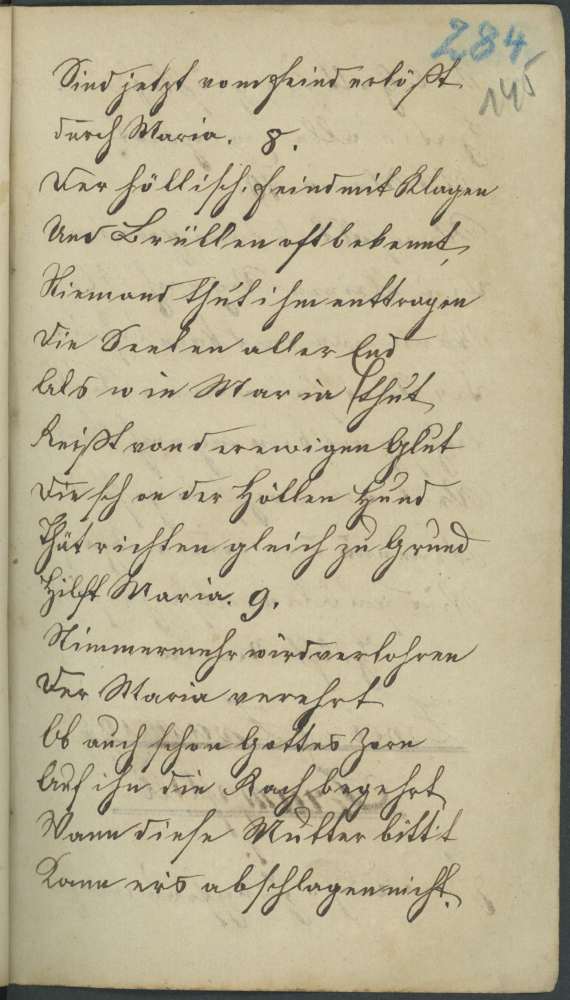 284
145
Sind jetzt vom Feind erlößt
durch Maria. 8.
Der höllisch. Feind mit Klagen
Und Brüllen oft bekennt,
Niemand thut ihm enttragen
Die Seelen aller End
Als wie Maria thut
Reißt von der ewigen Glut
Die schon der Höllen Hund
Thät richten gleich zu Grund
Hilft Maria. 9.
Nimmermehr wird verlohren
Der Maria verehrt
Ob auch schon Gottes Zorn
Auf ihn die Rach begehrt,
Wann diese Mutter bittit
Kann er's abschlagen nicht.